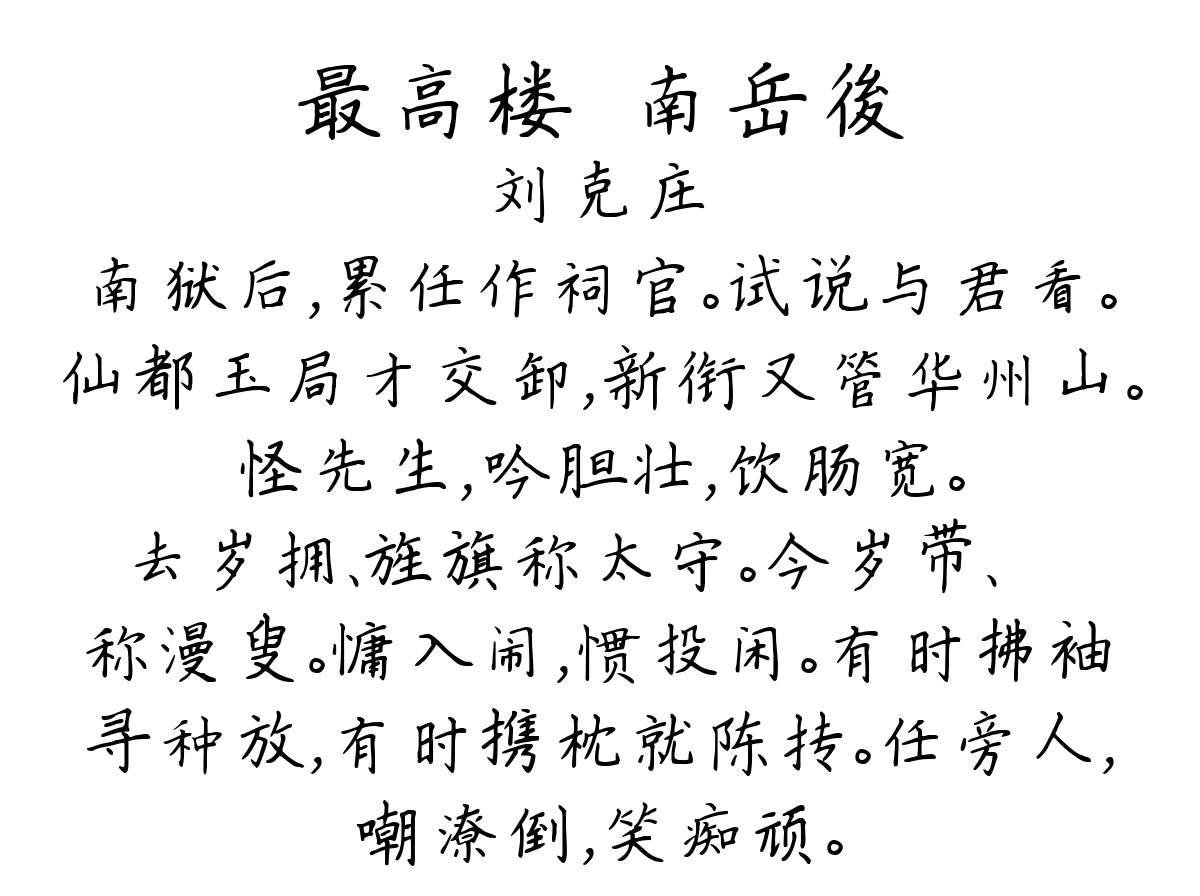 最高楼 南岳後
刘克庄
南狱后,累任作祠官。试说与君看。
仙都玉局才交卸,新衔又管华州山。
怪先生,吟胆壮,饮肠宽。
去岁拥、旌旗称太守。今岁带、
称漫叟。慵入闹,惯投闲。有时拂袖
寻种放,有时携枕就陈抟。任旁人,
嘲潦倒,笑痴顽。